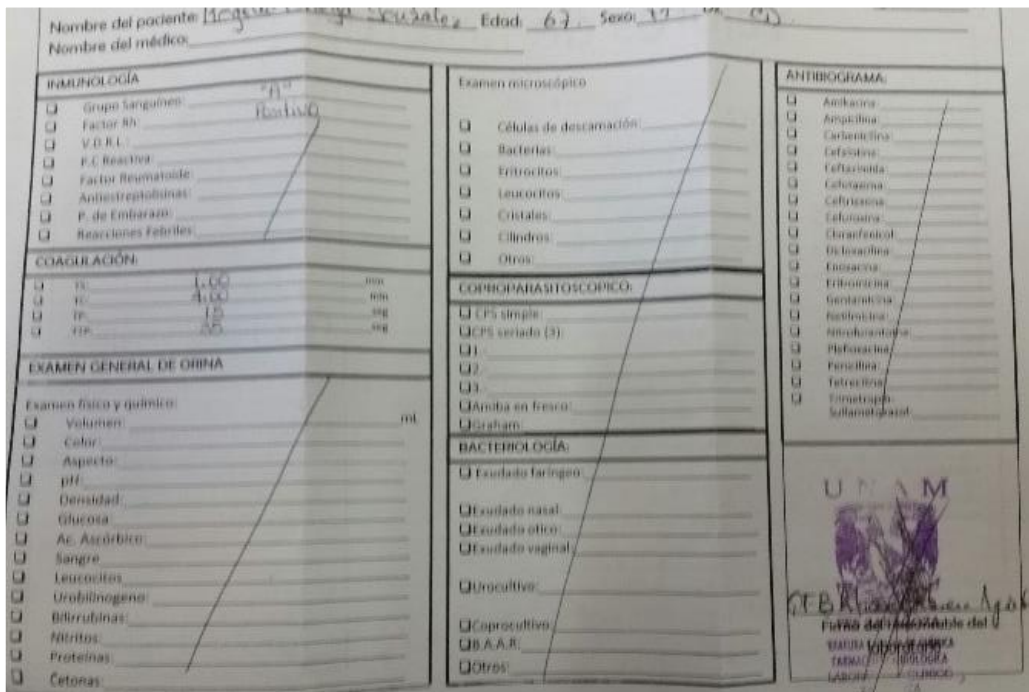 Nombre del paciente: González Edad: 67 Sexo:
Nombre del médico:
INMUNOLOGÍA
Grupo Sanguíneo: "A"
Factor Rh: Positivo
V.D.R.L.:
P.C Reactiva:
Factor Reumatoide:
Antiestreptolisinas:
P. de Embarazo:
Reacciones Febriles:
COAGULACIÓN:
TS: 1.00 min
TC: 4.00 min
TP: 15 seg
TTP: 35 seg
EXAMEN GENERAL DE ORINA
Examen físico y químico:
Volumen: mL
Color:
Aspecto:
pH:
Densidad:
Glucosa:
Ac. Ascórbico:
Sangre
Leucocitos
Urobilinogeno:
Bilirrubinas:
Nitritos:
Proteínas:
Cetonas:
Examen microscópico
Células de descamación:
Bacterias:
Eritrocitos:
Leucocitos:
Cristales:
Cilindros:
Otros:
COPROPARASITOSCOPICO:
CPS simple:
CPS seriado (3):
1.
2.
3.
Amiba en fresco:
Graham:
BACTERIOLOGÍA:
Exudado faríngeo:
Exudado nasal:
Exudado otico:
Exudado vaginal:
Urocultivo:
Coprocultivo:
B.A.A.R:
Otros:
ANTIBIOGRAMA:
Amikacina:
Ampicilina:
Carbenicilina:
Cefalotina:
Ceftazidida:
Cefotaxima:
Ceftriaxona:
Cefuroxina:
Cloranfenicol:
Dicloxacilina:
Enoxacina:
Eritromicina:
Gentamicina:
Netilmicina:
Nitrofurantoína:
Pefloxacina:
Penicilina:
Tetraciclina:
Trimetropin-
Sulfametoxazol:
UNAM
QFB
Firma del responsable del
laboratorio